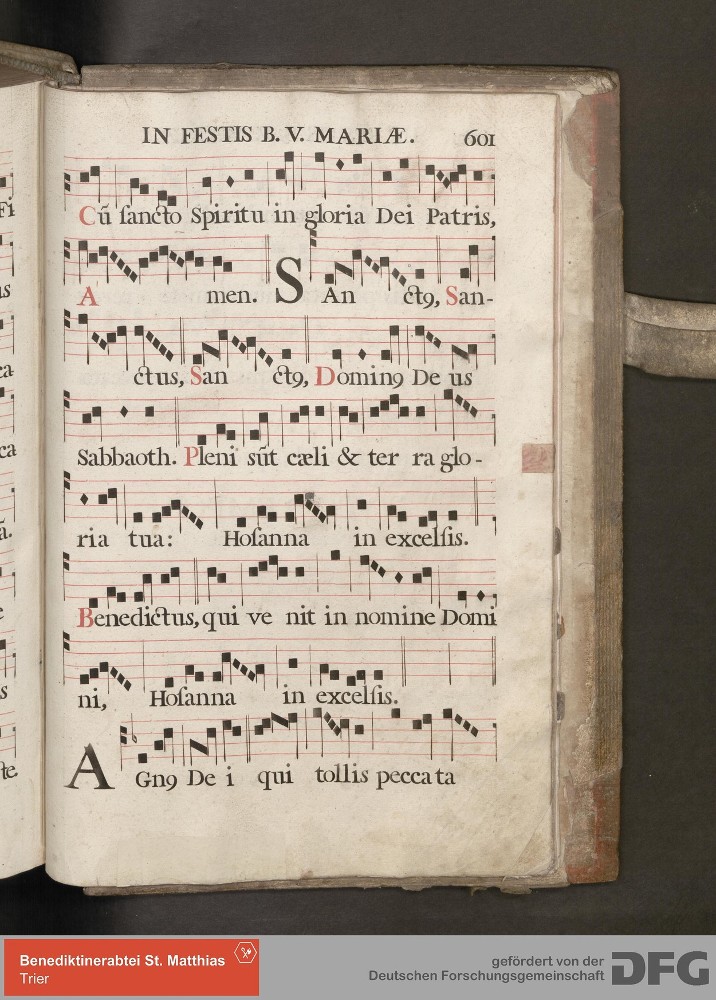 IN FESTIS B. V. MARIÆ. 601
Cũ ſancto Spiritu in gloria Dei Patris,
A men. SAn ctꝰ, San-
ctus, San ctꝰ, Dominꝰ De us
Sabbaoth. Pleni sũt cæli & ter ra glo-
ria tua: Hoſanna in excelſis.
Benedictus, qui ve nit in nomine Domi
ni, Hoſanna in excelſis.
AGnꝰ De i qui tollis pecca ta
Fi
us
ca
ca
ã.
e
s
te
Benediktinerabtei St. Matthias
Trier
gefördert von der
Deutschen Forschungsgemeinschaft DFG